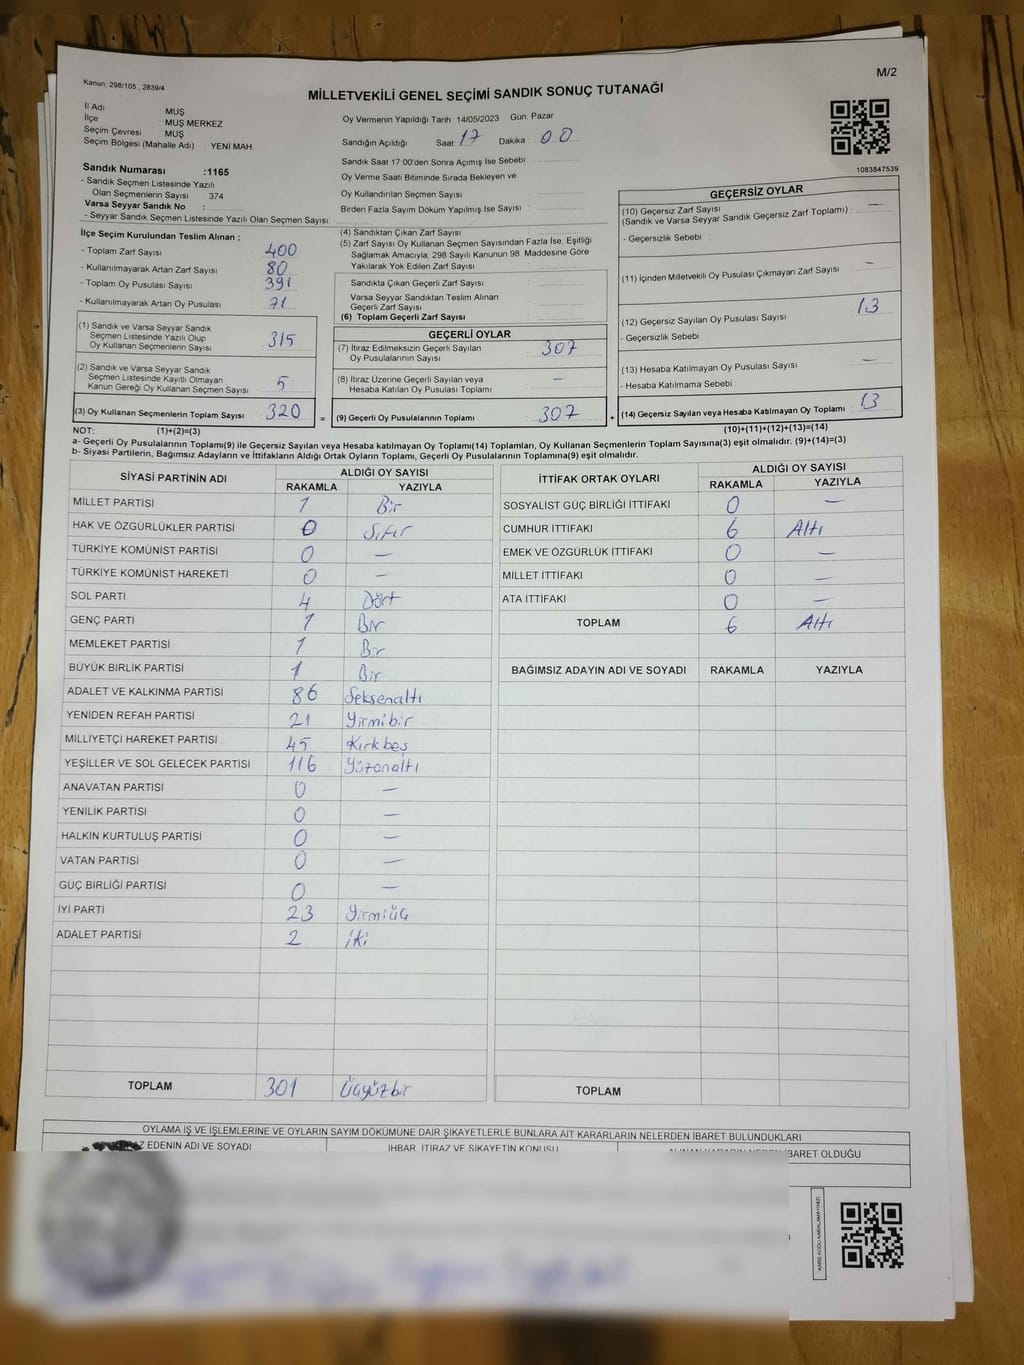 Kanun: 298/105 , 2839/4
M/2
MİLLETVEKİLİ GENEL SEÇİMİ SANDIK SONUÇ TUTANAĞI
İl Adı : MUŞ
İlçe : MUŞ MERKEZ
Seçim Çevresi : MUŞ
Seçim Bölgesi (Mahalle Adı) : YENİ MAH.
Sandık Numarası :1165
- Sandık Seçmen Listesinde Yazılı
Olan Seçmenlerin Sayısı : 374
Varsa Seyyar Sandık No :
- Seyyar Sandık Seçmen Listesinde Yazılı Olan Seçmen Sayısı:
Oy Vermenin Yapıldığı Tarih :14/05/2023 Gün: Pazar
Sandığın Açıldığı Saat: 17 Dakika: 00
Sandık Saat 17:00'den Sonra Açımış İse Sebebi
Oy Verme Saati Bitiminde Sırada Bekleyen ve
Oy Kullandırılan Seçmen Sayısı
Birden Fazla Sayım Döküm Yapılmış İse Sayısı
1083847539
İlçe Seçim Kurulundan Teslim Alınan ;
- Toplam Zarf Sayısı : 400
- Kullanılmayarak Artan Zarf Sayısı : 80
- Toplam Oy Pusulası Sayısı : 391
- Kullanılmayarak Artan Oy Pusulası : 71
(1) Sandık ve Varsa Seyyar Sandık
Seçmen Listesinde Yazılı Olup
Oy Kullanan Seçmenlerin Sayısı : 315
(2) Sandık ve Varsa Seyyar Sandık
Seçmen Listesinde Kayıtlı Olmayan
Kanun Gereği Oy Kullanan Seçmen Sayısı : 5
(3) Oy Kullanan Seçmenlerin Toplam Sayısı : 320 =
(4) Sandıktan Çıkan Zarf Sayısı
(5) Zarf Sayısı Oy Kullanan Seçmen Sayısından Fazla İse, Eşitliği
Sağlamak Amacıyla; 298 Sayılı Kanunun 98. Maddesine Göre
Yakılarak Yok Edilen Zarf Sayısı
Sandıkta Çıkan Geçerli Zarf Sayısı
Varsa Seyyar Sandıktan Teslim Alınan
Geçerli Zarf Sayısı
(6) Toplam Geçerli Zarf Sayısı
GEÇERLİ OYLAR
(7) İtiraz Edilmeksizin Geçerli Sayılan
Oy Pusulalarının Sayısı : 307
(8) İtiraz Üzerine Geçerli Sayılan veya
Hesaba Katılan Oy Pusulası Toplamı : —
(9) Geçerli Oy Pusulalarının Toplamı : 307 +
GEÇERSİZ OYLAR
(10) Geçersiz Zarf Sayısı
(Sandık ve Varsa Seyyar Sandık Geçersiz Zarf Toplamı) : —
- Geçersizlik Sebebi :
(11) İçinden Milletvekili Oy Pusulası Çıkmayan Zarf Sayısı : —
(12) Geçersiz Sayılan Oy Pusulası Sayısı : 13
- Geçersizlik Sebebi :
(13) Hesaba Katılmayan Oy Pusulası Sayısı : —
- Hesaba Katılmama Sebebi :
(14) Geçersiz Sayılan veya Hesaba Katılmayan Oy Toplamı : 13
NOT: (1)+(2)=(3) (10)+(11)+(12)+(13)=(14)
a- Geçerli Oy Pusulalarının Toplamı(9) ile Geçersiz Sayılan veya Hesaba katılmayan Oy Toplamı(14) Toplamları, Oy Kullanan Seçmenlerin Toplam Sayısına(3) eşit olmalıdır. (9)+(14)=(3)
b- Siyasi Partilerin, Bağımsız Adayların ve İttifakların Aldığı Ortak Oyların Toplamı, Geçerli Oy Pusulalarının Toplamına(9) eşit olmalıdır.
SİYASİ PARTİNİN ADI ALDIĞI OY SAYISI
RAKAMLA YAZIYLA
MİLLET PARTİSİ 1 Bir
HAK VE ÖZGÜRLÜKLER PARTİSİ 0 Sıfır
TÜRKİYE KOMÜNİST PARTİSİ 0 —
TÜRKİYE KOMÜNİST HAREKETİ 0 —
SOL PARTİ 4 Dört
GENÇ PARTİ 1 Bir
MEMLEKET PARTİSİ 1 Bir
BÜYÜK BİRLİK PARTİSİ 1 Bir
ADALET VE KALKINMA PARTİSİ 86 Seksenaltı
YENİDEN REFAH PARTİSİ 21 Yirmibir
MİLLİYETÇİ HAREKET PARTİSİ 45 Kırkbeş
YEŞİLLER VE SOL GELECEK PARTİSİ 116 Yüzonaltı
ANAVATAN PARTİSİ 0 —
YENİLİK PARTİSİ 0 —
HALKIN KURTULUŞ PARTİSİ 0 —
VATAN PARTİSİ 0 —
GÜÇ BİRLİĞİ PARTİSİ 0 —
İYİ PARTİ 23 Yirmiüç
ADALET PARTİSİ 2 İki
TOPLAM 301 Üçyüzbir
İTTİFAK ORTAK OYLARI ALDIĞI OY SAYISI
RAKAMLA YAZIYLA
SOSYALİST GÜÇ BİRLİĞİ İTTİFAKI 0 —
CUMHUR İTTİFAKI 6 Altı
EMEK VE ÖZGÜRLÜK İTTİFAKI 0 —
MİLLET İTTİFAKI 0 —
ATA İTTİFAKI 0 —
TOPLAM 6 Altı
BAĞIMSIZ ADAYIN ADI VE SOYADI RAKAMLA YAZIYLA
TOPLAM
OYLAMA İŞ VE İŞLEMLERİNE VE OYLARIN SAYIM DÖKÜMÜNE DAİR ŞİKAYETLERLE BUNLARA AİT KARARLARIN NELERDEN İBARET BULUNDUKLARI
EDENİN ADI VE SOYADI İHBAR, İTİRAZ VE ŞİKAYETİN KONUSU ALINAN KARARIN NEDEN İBARET OLDUĞU
KARE KODU KARALAMAYINIZ!